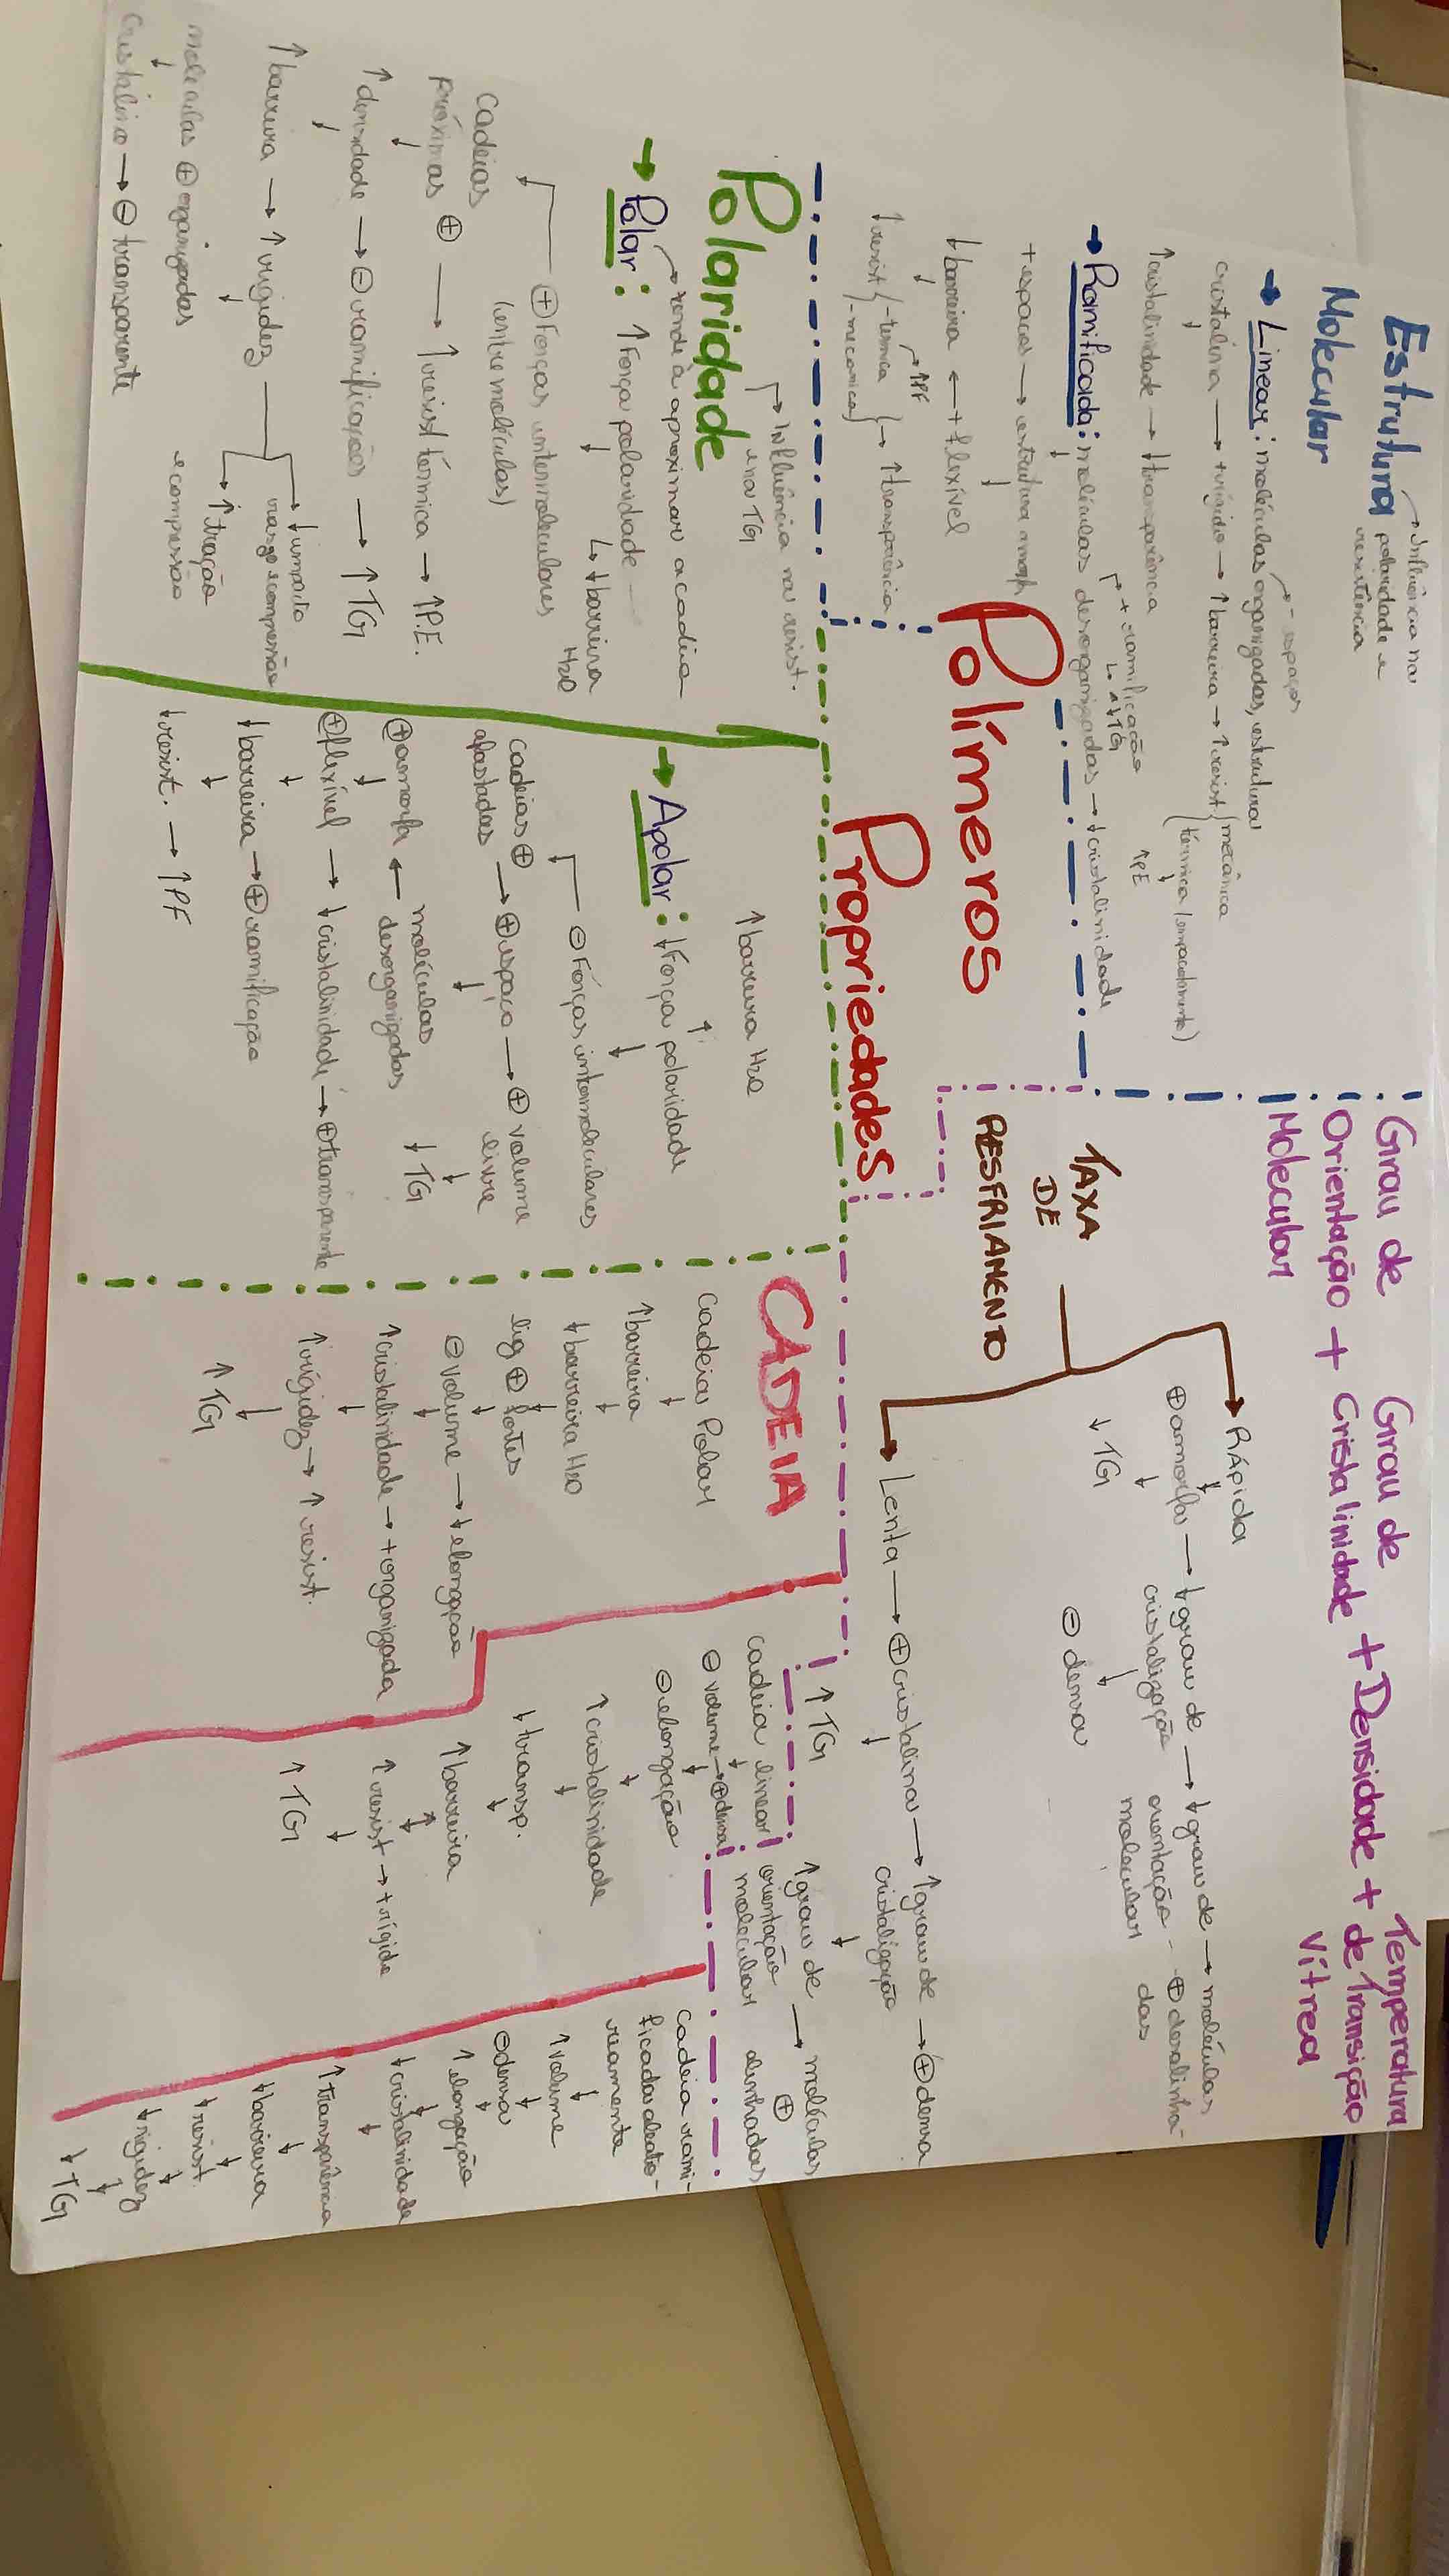 Estrutura
Molecular
→ Influência na
polaridade e
resistência
→ Linear: moléculas organizadas, estrutura
- espaços
cristalina → + rígido → ↑ barreira → ↑ resist { mecânica
térmica (empacotamento)
↑ PE
↑ cristalinidade → ↓ transparência
→ Ramificada: moléculas desorganizadas → ↓ cristalinidade
+ ramificação
↳ ↓ TG
+ espaços → estrutura amorf
↓ barreira ← + flexível
↑ PF
↑ resist { - térmica
- mecânica } → ↑ transparência
Polímeros
Propriedades
Grau de
Orientação +
Molecular
Grau de
Cristalinidade
+ Densidade +
Temperatura
de Transição
Vítrea
TAXA
DE
RESFRIAMENTO
→ RÁPIDA
⊕ amorfa → ↓ grau de
cristalização
→ ↓ grau de
orientação
molecular
→ moléculas
⊕ desalinha-
das
↓ TG
⊖ densa
→ Lenta → ⊕ cristalina → ↑ grau de
cristalização
→ ⊕ densa
↑ TG
↑ grau de
orientação
molecular
→ moléculas
⊕
alinhadas
Polaridade
→ Influência na resist.
e na TG
tende a aproximar a cadeia
→ Polar: ↑ Força polaridade
↳ ↓ barreira
H2O
⊕ Forças intermoleculares
(entre moléculas)
cadeias
próximas ⊕ → ↑ resist térmica → ↑ P.E.
↑ densidade → ⊖ ramificações → ↑ TG
↑ barreira → ↑ rigidez
→ ↓ impacto
rasgo e compressão
→ ↑ tração
e compressão
moléculas ⊕ organizadas
cristalino → ⊖ transparente
↑ barreira H2O
→ Apolar: ↓ Força polaridade
⊖ Forças intermoleculares
cadeias ⊕
afastadas → ⊕ espaço → ⊕ volume
livre
⊕ amorfa ← moléculas
desorganizadas
↓ TG
⊕ flexível → ↓ cristalinidade → ⊕ transparente
↓ barreira → ⊕ ramificação
↓ resist. → ↑ PF
CADEIA
Cadeia Polar
↑ barreira
↓ barreira H2O
lig ⊕ fortes
⊖ volume → ↓ elongação
↑ cristalinidade → + organizada
↑ rigidez → ↑ resist.
↑ TG
Cadeia linear
⊖ volume → ⊕ densa
⊖ elongação
↑ cristalinidade
↓ transp.
↑ barreira
↑ resist → + rígida
↑ TG
Cadeia rami-
ficada aleato-
riamente
↑ volume
⊖ densa
↑ elongação
↓ cristalinidade
↑ transparência
↓ barreira
↓ resist.
↓ rigidez
↓ TG